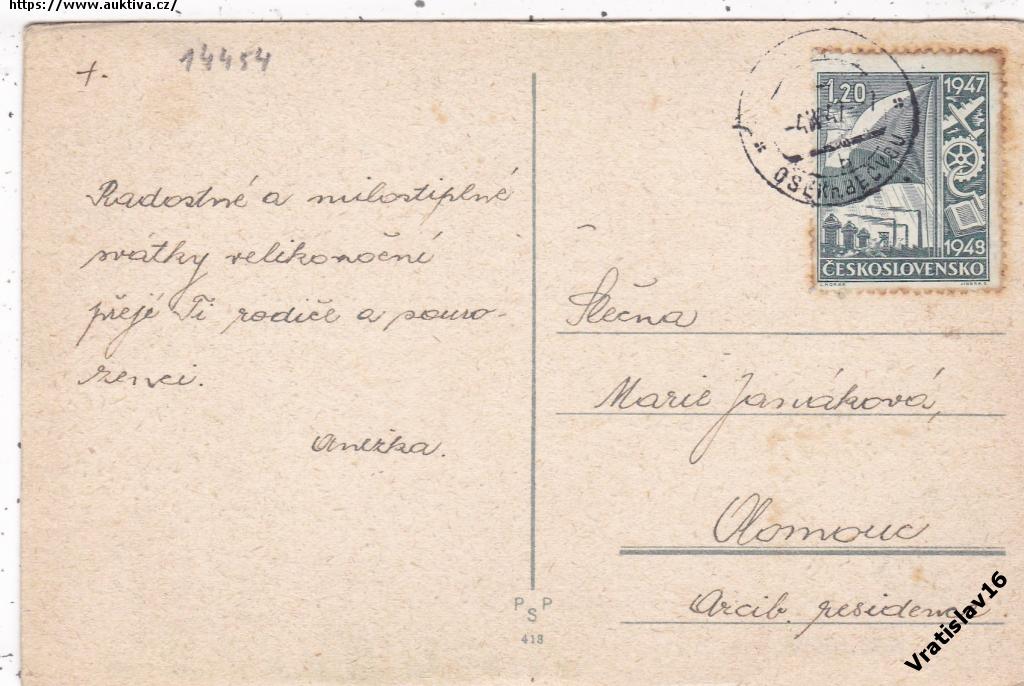 https://www.auktiva.cz/
+.
14454
Radostné a milostiplné
svátky velikonoční
přejé Ti rodiče a souro-
zenci.
Anežka.
1.20
1947
1948
ČESKOSLOVENSKO
OSEK n. BEČVOU
Slečna
Marie
Olomouc
Arcib. residence.
P S P
418
Vratislav16